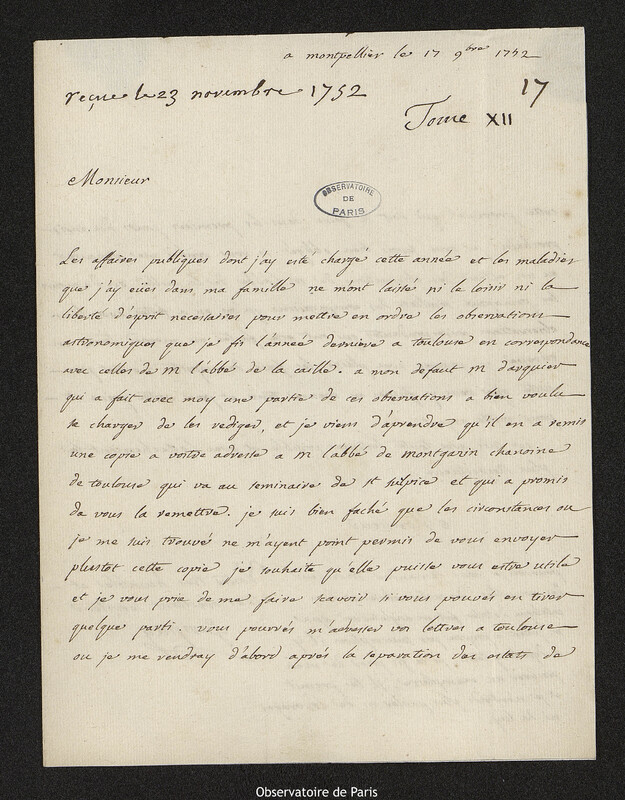 a montpellier le 17 9bre 1752
reçue le 23 novembre 1752
17
Tome XII
Monsieur
OBSERVATOIRE
DE
PARIS
Les affaires publiques dont j'ay esté chargé cette année et les maladies
que j'ay eües dans ma famille ne mont laissé ni le loisir ni la
liberté d'esprit necessaires pour mettre en ordre les observations
astronomiques que je fis l'année derniere a toulouse en correspondance
avec celles de M l'abbé de la caille. a mon defaut M darquier
qui a fait avec moy une partie de ces observations a bien voulu
se charger de les rediger, et je viens d'aprendre qu'il en a remis
une copie a vostre adresse a M l'abbé de montgazin chanoine
de toulouse qui va au seminaire de st sulpice et qui a promis
de vous la remettre. je suis bien faché que les circonstances ou
je me suis trouvé ne m'ayent point permis de vous envoyer
plustot cette copie je souhaite qu'elle puisse vous estre utile
et je vous prie de me faire scavoir si vous pouvés en tirer
quelque parti. vous pourrés m'adresser vos lettres a toulouse
ou je me rendray d'abord aprés la separation des estats de
Observatoire de Paris